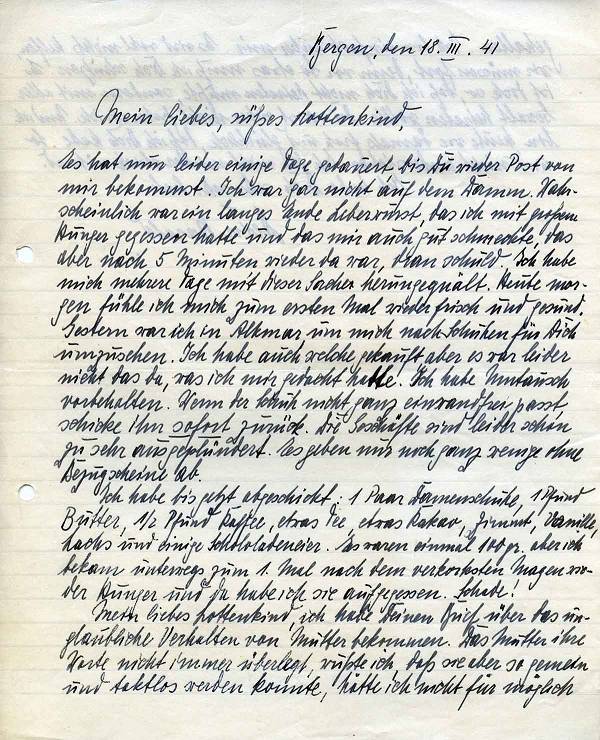 Bergen, den 18. III. 41
Mein liebes, süßes Lottenkind,
Es hat nun leider einige Tage gedauert, bis Du wieder Post von
mir bekommst. Ich war gar nicht auf dem Damm. Wahr-
scheinlich war ein langes Ende Leberwurst, das ich mit großem
Hunger gegessen hatte und das mir auch gut schmeckte, das
aber nach 5 Minuten wieder da war, dran schuld. Ich habe
mich mehrere Tage mit dieser Sache herumgequält. Heute mor-
gen fühle ich mich zum ersten Mal wieder frisch und gesund.
Gestern war ich in Alkmar um mich nach Schuhen für Dich
umzusehen. Ich habe auch welche gekauft aber es war leider
nicht das da, was ich mir gedacht hatte. Ich habe Umtausch
vorbehalten. Wenn der Schuh nicht ganz einwandfrei passt,
schicke ihn sofort zurück. Die Geschäfte sind leider schon
zu sehr ausgeplündert. Es geben nur noch ganz wenige ohne
Bezugscheine ab.
Ich habe bis jetzt abgeschickt: 1 Paar Damenschuhe, 1 Pfund
Butter, 1/2 Pfund Kaffee, etwas Tee, etwas Kakao, Zimmt, Vanille,
Lachs und einige Schokoladeneier. Es waren einmal 100 gr. aber ich
bekam unterwegs zum 1. Mal nach dem verkorksten Magen wie-
der Hunger und da habe ich sie aufgegessen. Schade!
Mein liebes Lottenkind, ich habe Deinen Brief über das un-
glaubliche Verhalten von Mutter bekommen. Das Mutter ihre
Worte nicht immer überlegt, wußte ich, daß sie aber so gemein
und taktlos werden konnte, hätte ich nicht für möglich